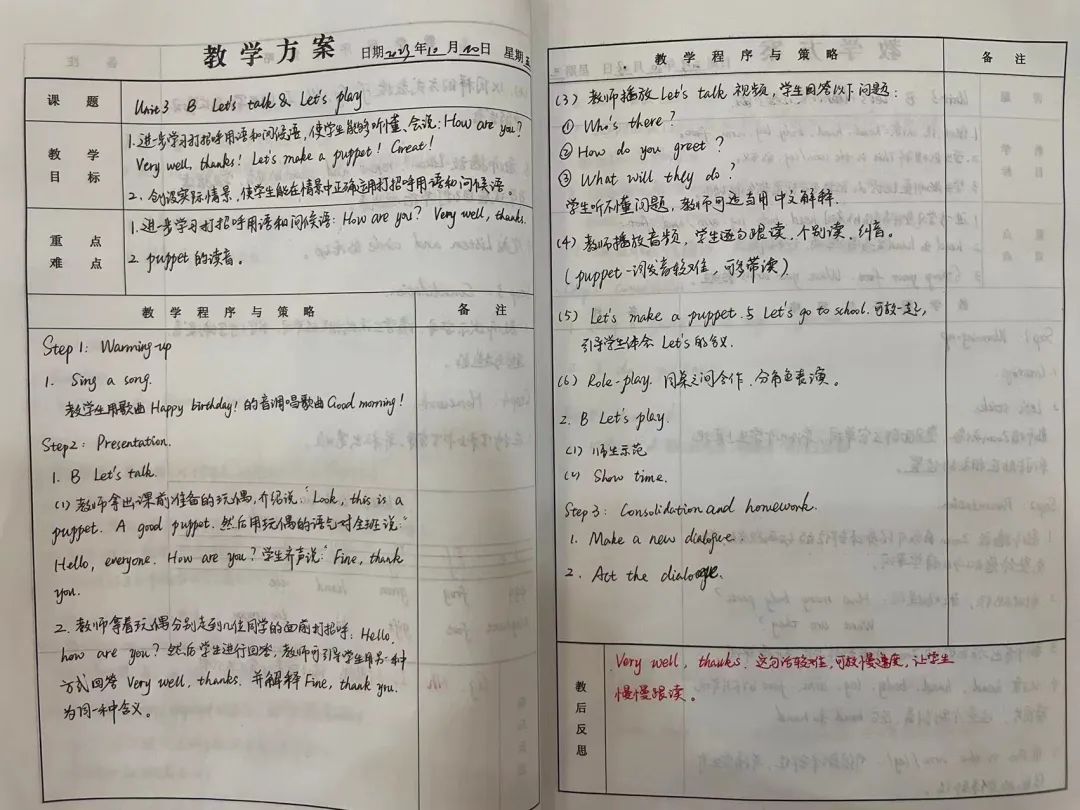 教学方案 日期2023年10月20日 星期五
课题 Unit 3 B Let's talk & Let's play
教学目标 1.进步学习打招呼用语和问候语,使学生能够听懂、会说:How are you?
Very well, thanks! Let's make a puppet! Great!
2、创设实际情景,使学生能在情景中正确运用打招呼用语和问候语。
重点难点 1.进步学习打招呼用语和问候语:How are you? Very well, thanks.
2. puppet的读音。
教学程序与策略 备注
Step 1: Warming-up
1. Sing a song.
教学生用歌曲Happy birthday!的音调唱歌曲Good morning!
Step2: Presentation.
1. B Let's talk.
(1) 教师拿出课前准备的玩偶,介绍说:"Look, this is a
puppet. A good puppet. 然后用玩偶的语气对全班说:"
Hello, everyone. How are you? 学生齐声说:"Fine, thank
you.
2. 教师拿着玩偶分别走到几位同学的面前打招呼:Hello.
how are you? 然后学生进行回答,教师可引导学生用另一种
方式回答 Very well, thanks. 并解释Fine, thank you.
为同一种含义。
教学程序与策略 备注
(3) 教师播放Let's talk视频,学生回答以下问题:
① Who's there?
② How do you greet?
③ What will they do?
学生听不懂问题,教师可适当用中文解释.
(4) 教师播放音频,学生逐句跟读、个别读、纠音。
(puppet一词发音较难,可多带读)
(5) Let's make a puppet.与Let's go to school.可放一起,
引导学生体会Let's的含义.
(6) Role-play. 同桌之间合作,分角色表演。
2. B Let's play.
(1) 师生示范
(2) Show time.
Step 3: Consolidation and homework.
1. Make a new dialogue.
2. Act the dialogue.
教后反思 Very well, thanks. 这句话较难,可放慢速度,让学生
慢慢跟读。